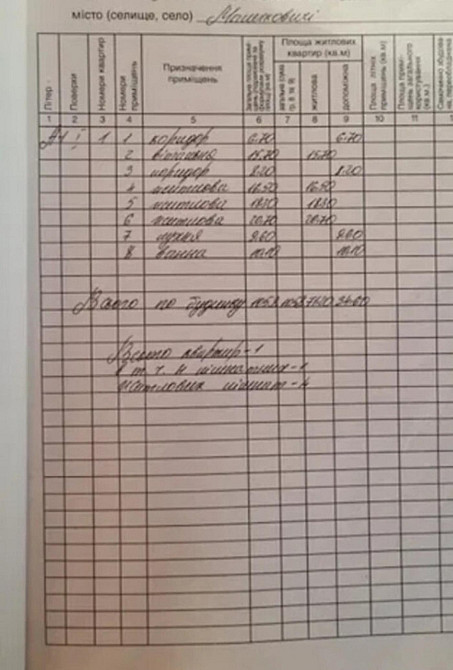 місто (селище, село) Малехковичі
Літер
Поверхи
Номери квартир
Номери приміщень
Призначення приміщень
Площа житлових квартир (кв.м)
загальна сума (гр. 8 та 9)
житлова
допоміжна
Площа літніх приміщень (кв.м)
Площа приміщень загального користування (кв.м.)
1 2 3 4 5 6 7 8 9 10 11
А-1 I 1 1 коридор 6.70 6.70
2 вітальня 15.70 15.70
3 коридор 8.20 8.20
4 житлова 16.50 16.50
5 житлова 18.30 18.30
6 житлова 20.70 20.70
7 кухня 9.60 9.60
8 ванна 10.10 10.10
Всього по будинку 105.8 105.8 71.20 34.60
Всього квартир-1
в т.ч. 4 кімнатних-1
житлових кімнат-4